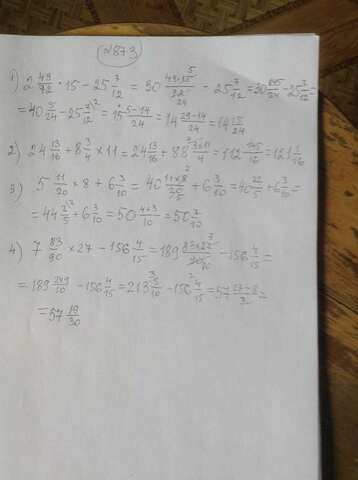 №873
1) 2 49/72 · 15 - 25 7/12 = 30 49×15 5/72 24 - 25 7/12 = 30 245/24 - 25 7/12 =
= 40 5/24 - 25 7/12 2 = 15 5-14/24 = 14 29-14/24 = 14 15/24
2) 24 13/16 + 8 3/4 × 11 = 24 13/16 + 88 3×11/4
3) 5 11/20 × 8 + 6 3/10 = 40 11×8 2/20 5 + 6 3/10 = 40 22/5 + 6 3/10 =
= 44 2/5 2 + 6 3/10 = 50 4+3/10 = 50 7/10
4) 7 83/90 × 27 - 156 4/15 = 189 83×27 3/90 10 - 156 4/15 =
= 189 249/10 - 156 4/15 = 213 9/10 3 - 156 4/15 2 =
= 57 19/30